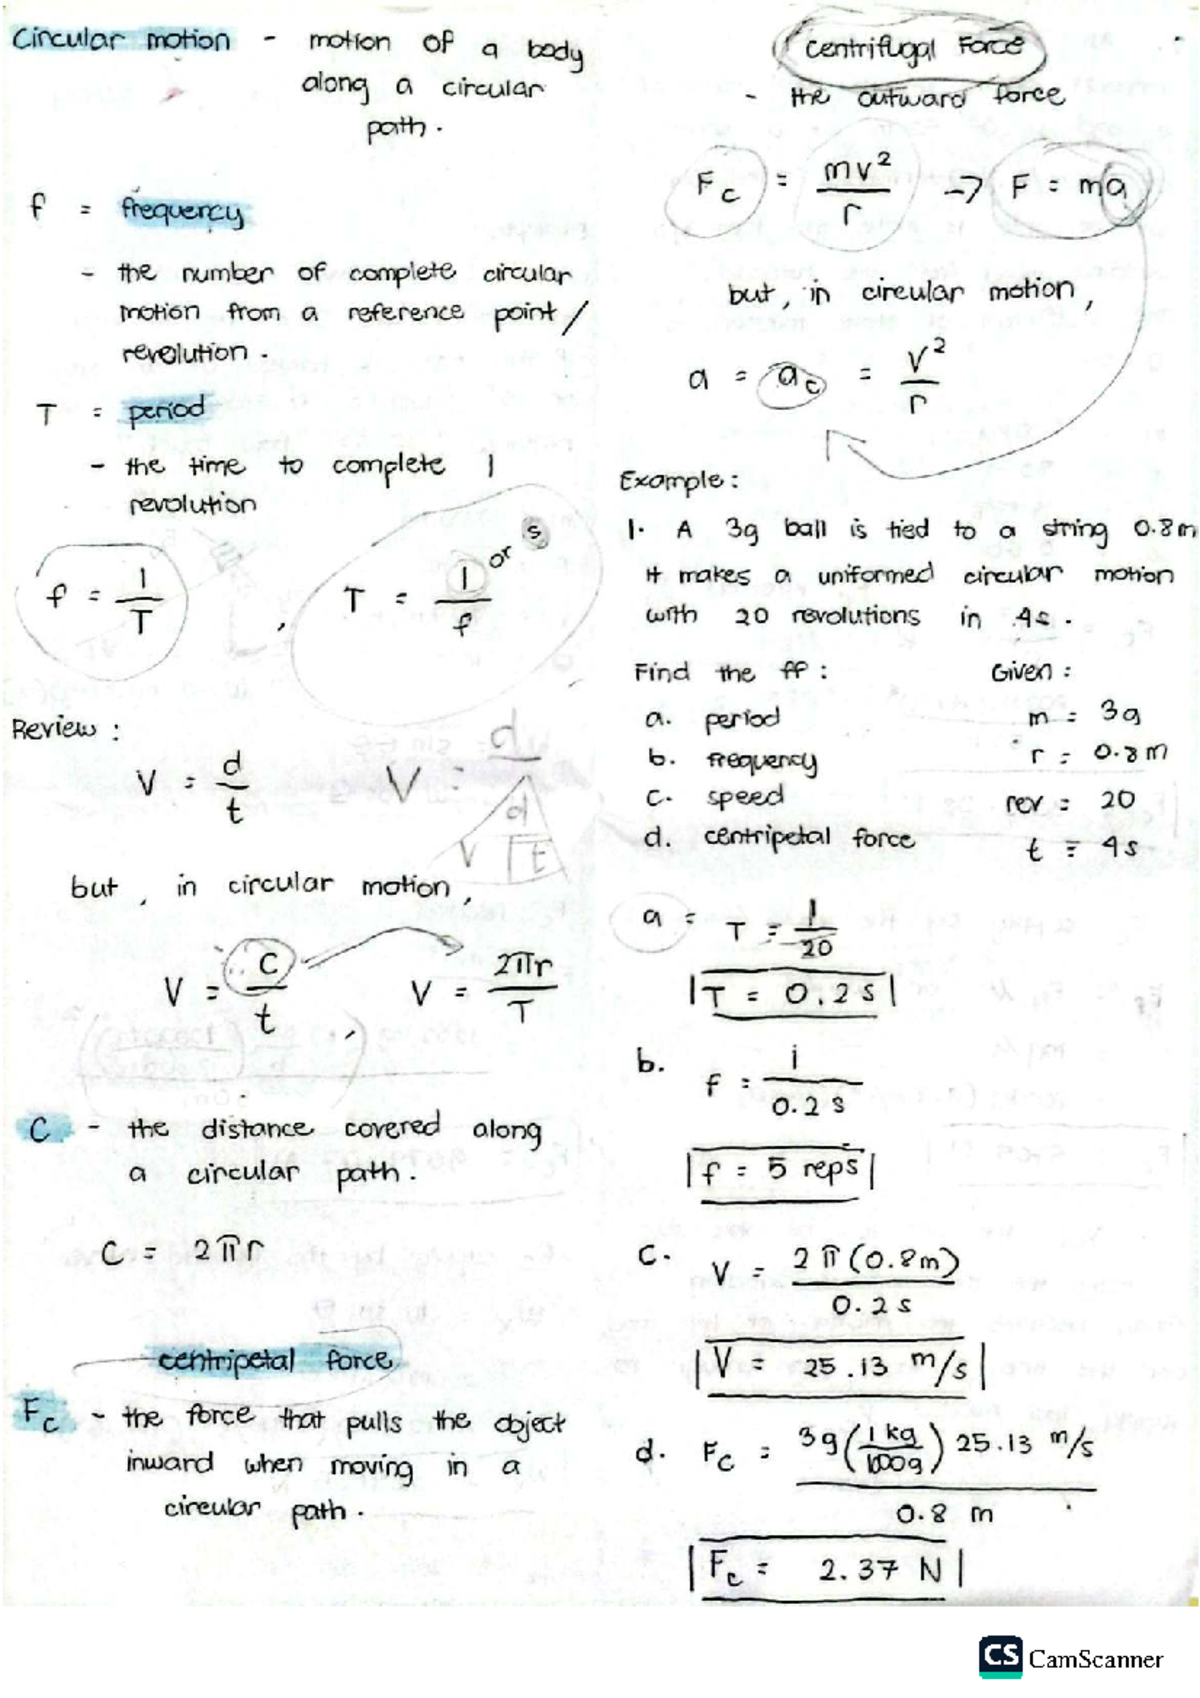 Circular motion - motion of a body
along a circular
path.
f = frequency
- the number of complete circular
motion from a reference point/
revolution.
T = period
- the time to complete 1
revolution
f = 1/T , T = 1/f or s
Review:
V = d/t V = d
d
V t
but, in circular motion,
V = C/t , V = 2πr/T
C - the distance covered along
a circular path.
C = 2πr
centripetal force
Fc - the force that pulls the object
inward when moving in a
circular path.
centrifugal Force
- the outward force
Fc = mv²/r → F = ma
but, in circular motion,
a = ac = v²/r
Example:
1. A 3g ball is tied to a string 0.8m
It makes a uniformed circular motion
with 20 revolutions in 4s.
Find the ff: Given:
a. period m = 3g
b. frequency r = 0.8m
c. speed rev = 20
d. centripetal force t = 4s
a = T = 1/20
T = 0.2s
b. f = 1/0.2s
f = 5 reps
c. V = 2π(0.8m)/0.2s
V = 25.13 m/s
d. Fc = 3g(1kg/1000g) 25.13 m/s / 0.8 m
Fc = 2.37 N
CS CamScanner